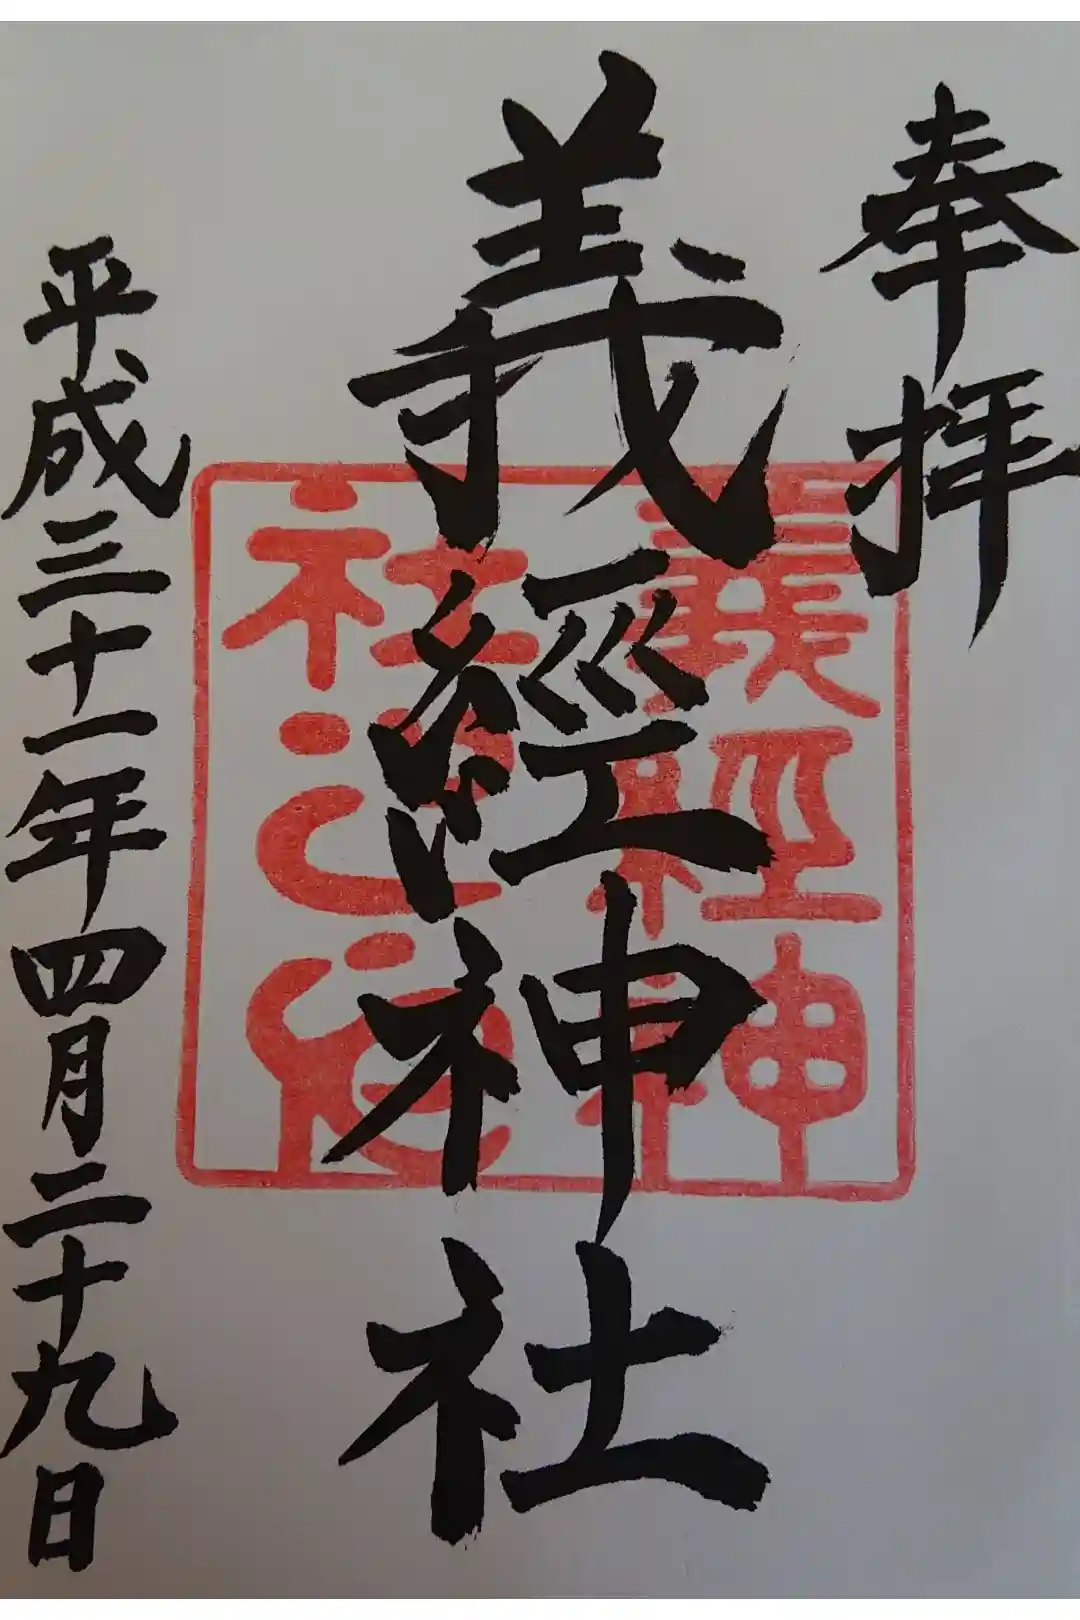 奉拝
義經神社
義経神
社之印
平成三十一年四月二十九日